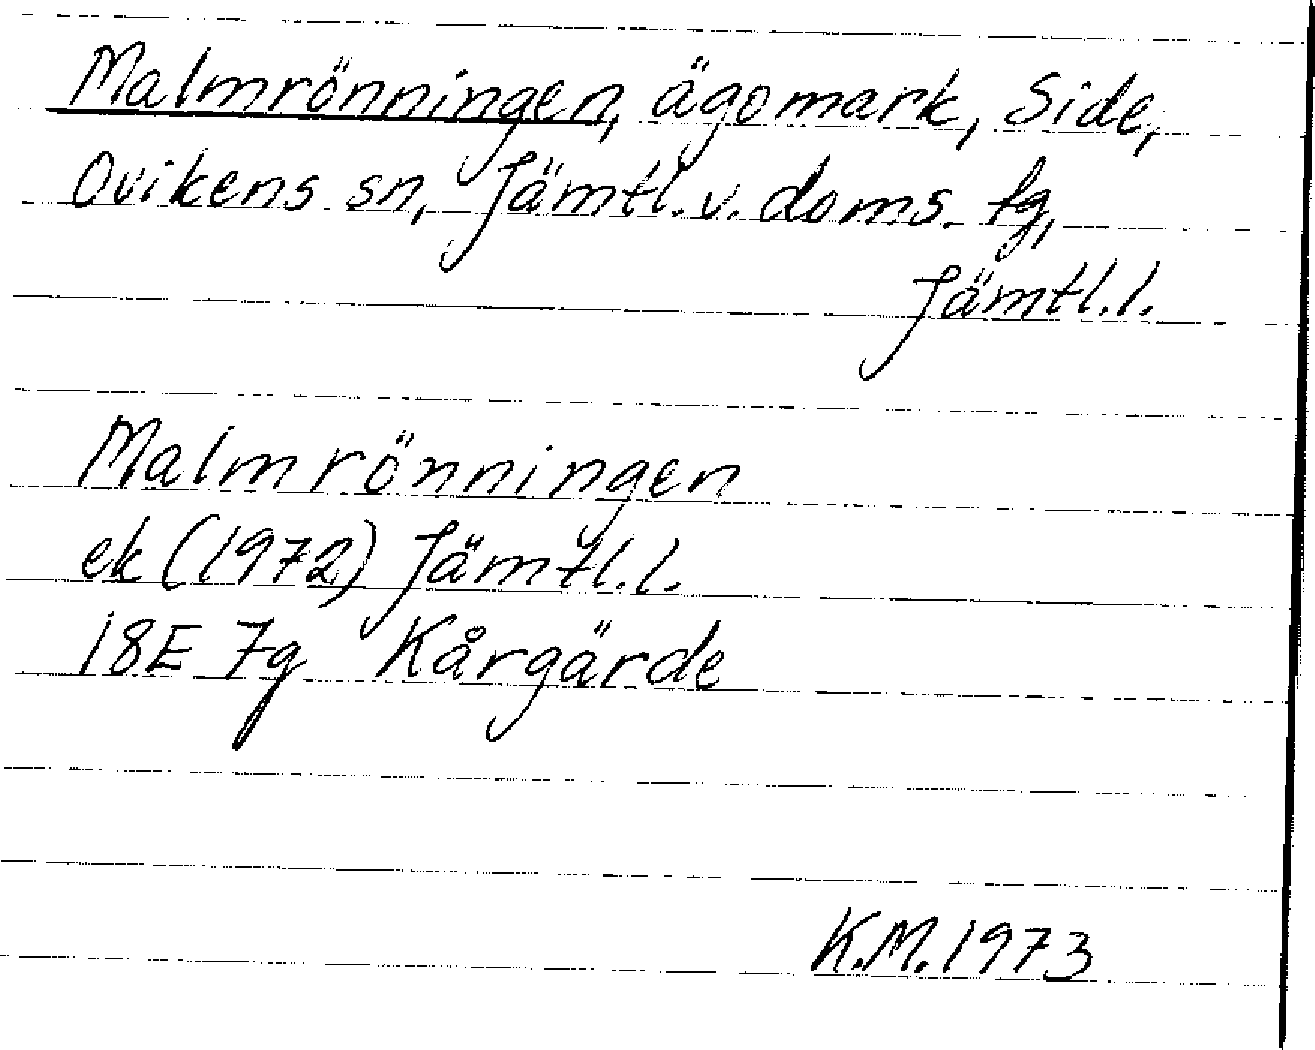 Malmrönningen, ägomark, Side,
Ovikens sn, Jämtl. v. doms. tg,
Jämtl. l.
Malmrönningen
ek (1972) Jämtl. l.
18E 7g Kårgärde
K.M. 1973